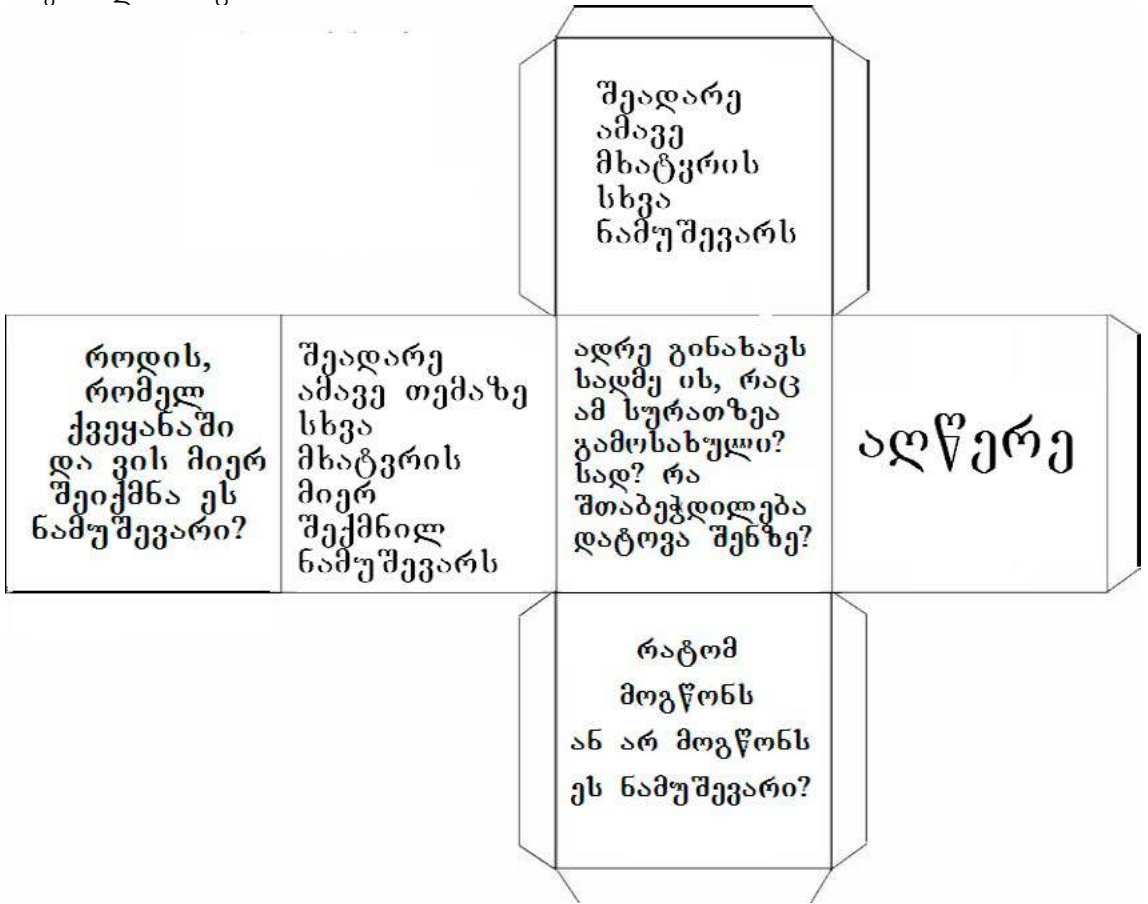 შეადარე
ამავე
მხატვრის
სხვა
ნამუშევარს
როდის,
რომელ
ქვეყანაში
და ვის მიერ
შეიქმნა ეს
ნამუშევარი?
შეადარე
ამავე თემაზე
სხვა
მხატვრის
მიერ
შექმნილ
ნამუშევარს
ადრე გინახავს
სადმე ის, რაც
ამ სურათზეა
გამოსახული?
სად? რა
შთაბეჭდილება
დატოვა შენზე?
აღწერე
რატომ
მოგწონს
ან არ მოგწონს
ეს ნამუშევარი?